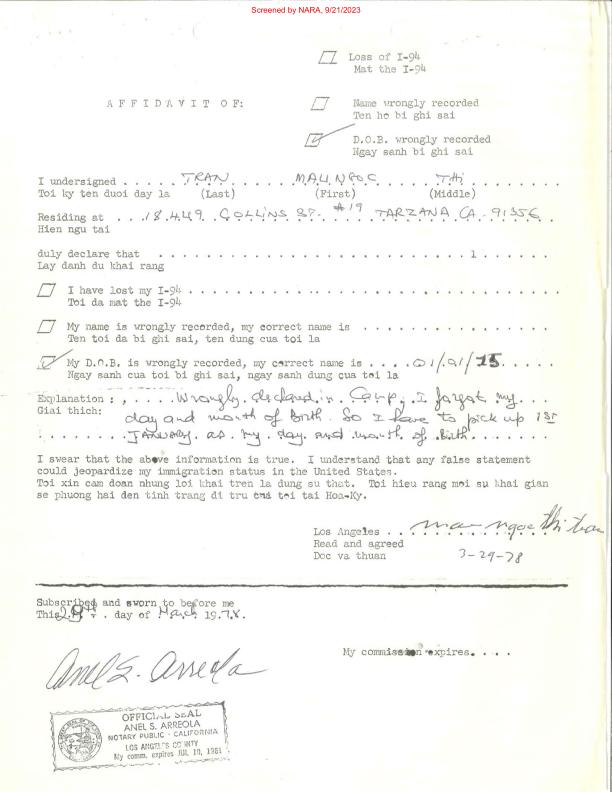 Screened by NARA, 9/21/2023
Loss of I-94
Mat the I-94
AFFIDAVIT OF:
Name wrongly recorded
Ten ho bi ghi sai
D.O.B. wrongly recorded
Ngay sanh bi ghi sai
I undersigned . . . . . TRAN . . . . . . MAU NGOC . . . . . THI . . . . .
Toi ky ten duoi day la (Last) (First) (Middle)
Residing at . . . 18.449 COLLINS ST. #19 TARZANA CA. 91356
Hien ngu tai
duly declare that . . . . . . . . . . . . . . . . . . . . . . . . . .
Lay danh du khai rang
I have lost my I-94 . . . . . . . . . . . . . . . . . . . . . . . .
Toi da mat the I-94
My name is wrongly recorded, my correct name is . . . . . . . . . . .
Ten toi da bi ghi sai, ten dung cua toi la
My D.O.B. is wrongly recorded, my correct name is . . . . 01/01/15 . . . . .
Ngay sanh cua toi bi ghi sai, ngay sanh dung cua toi la
Explanation : , . . . . Wrongly declared in Camp. I forgot my . . .
Giai thich: day and month of Birth. So I have to pick up 1st
. . . . . . . . JANUARY as my day and month of Birth . . . . . . .
I swear that the above information is true. I understand that any false statement
could jeopardize my immigration status in the United States.
Toi xin cam doan nhung loi khai tren la dung su that. Toi hieu rang moi su khai gian
se phuong hai den tinh trang di tru cua toi tai Hoa-Ky.
Los Angeles . . mau ngoc thi tran
Read and agreed
Doc va thuan 3-29-78
Subscribed and sworn to before me
This 29th . day of March 19.78.
My commission expires. . . .
Anel S. Arreola
OFFICIAL SEAL
ANEL S. ARREOLA
NOTARY PUBLIC - CALIFORNIA
LOS ANGELES COUNTY
My comm. expires JUL 10, 1981